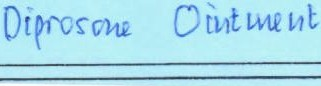 Diprosone Ointment